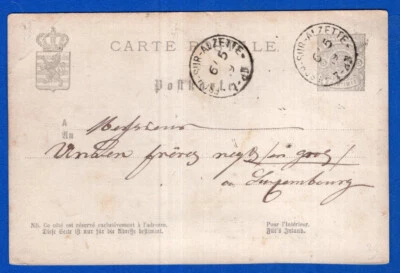 CARTE POSTALE.
Postkarte.
SUR-ALZETTE
5
SUR-ALZETTE
5
A
An
Messieurs
frères négts en gros
à Luxembourg
NB. Ce côté est réservé exclusivement à l'adresse.
Diese Seite ist nur für die Adresse bestimmt.
Pour l'intérieur.
Für's Innere.